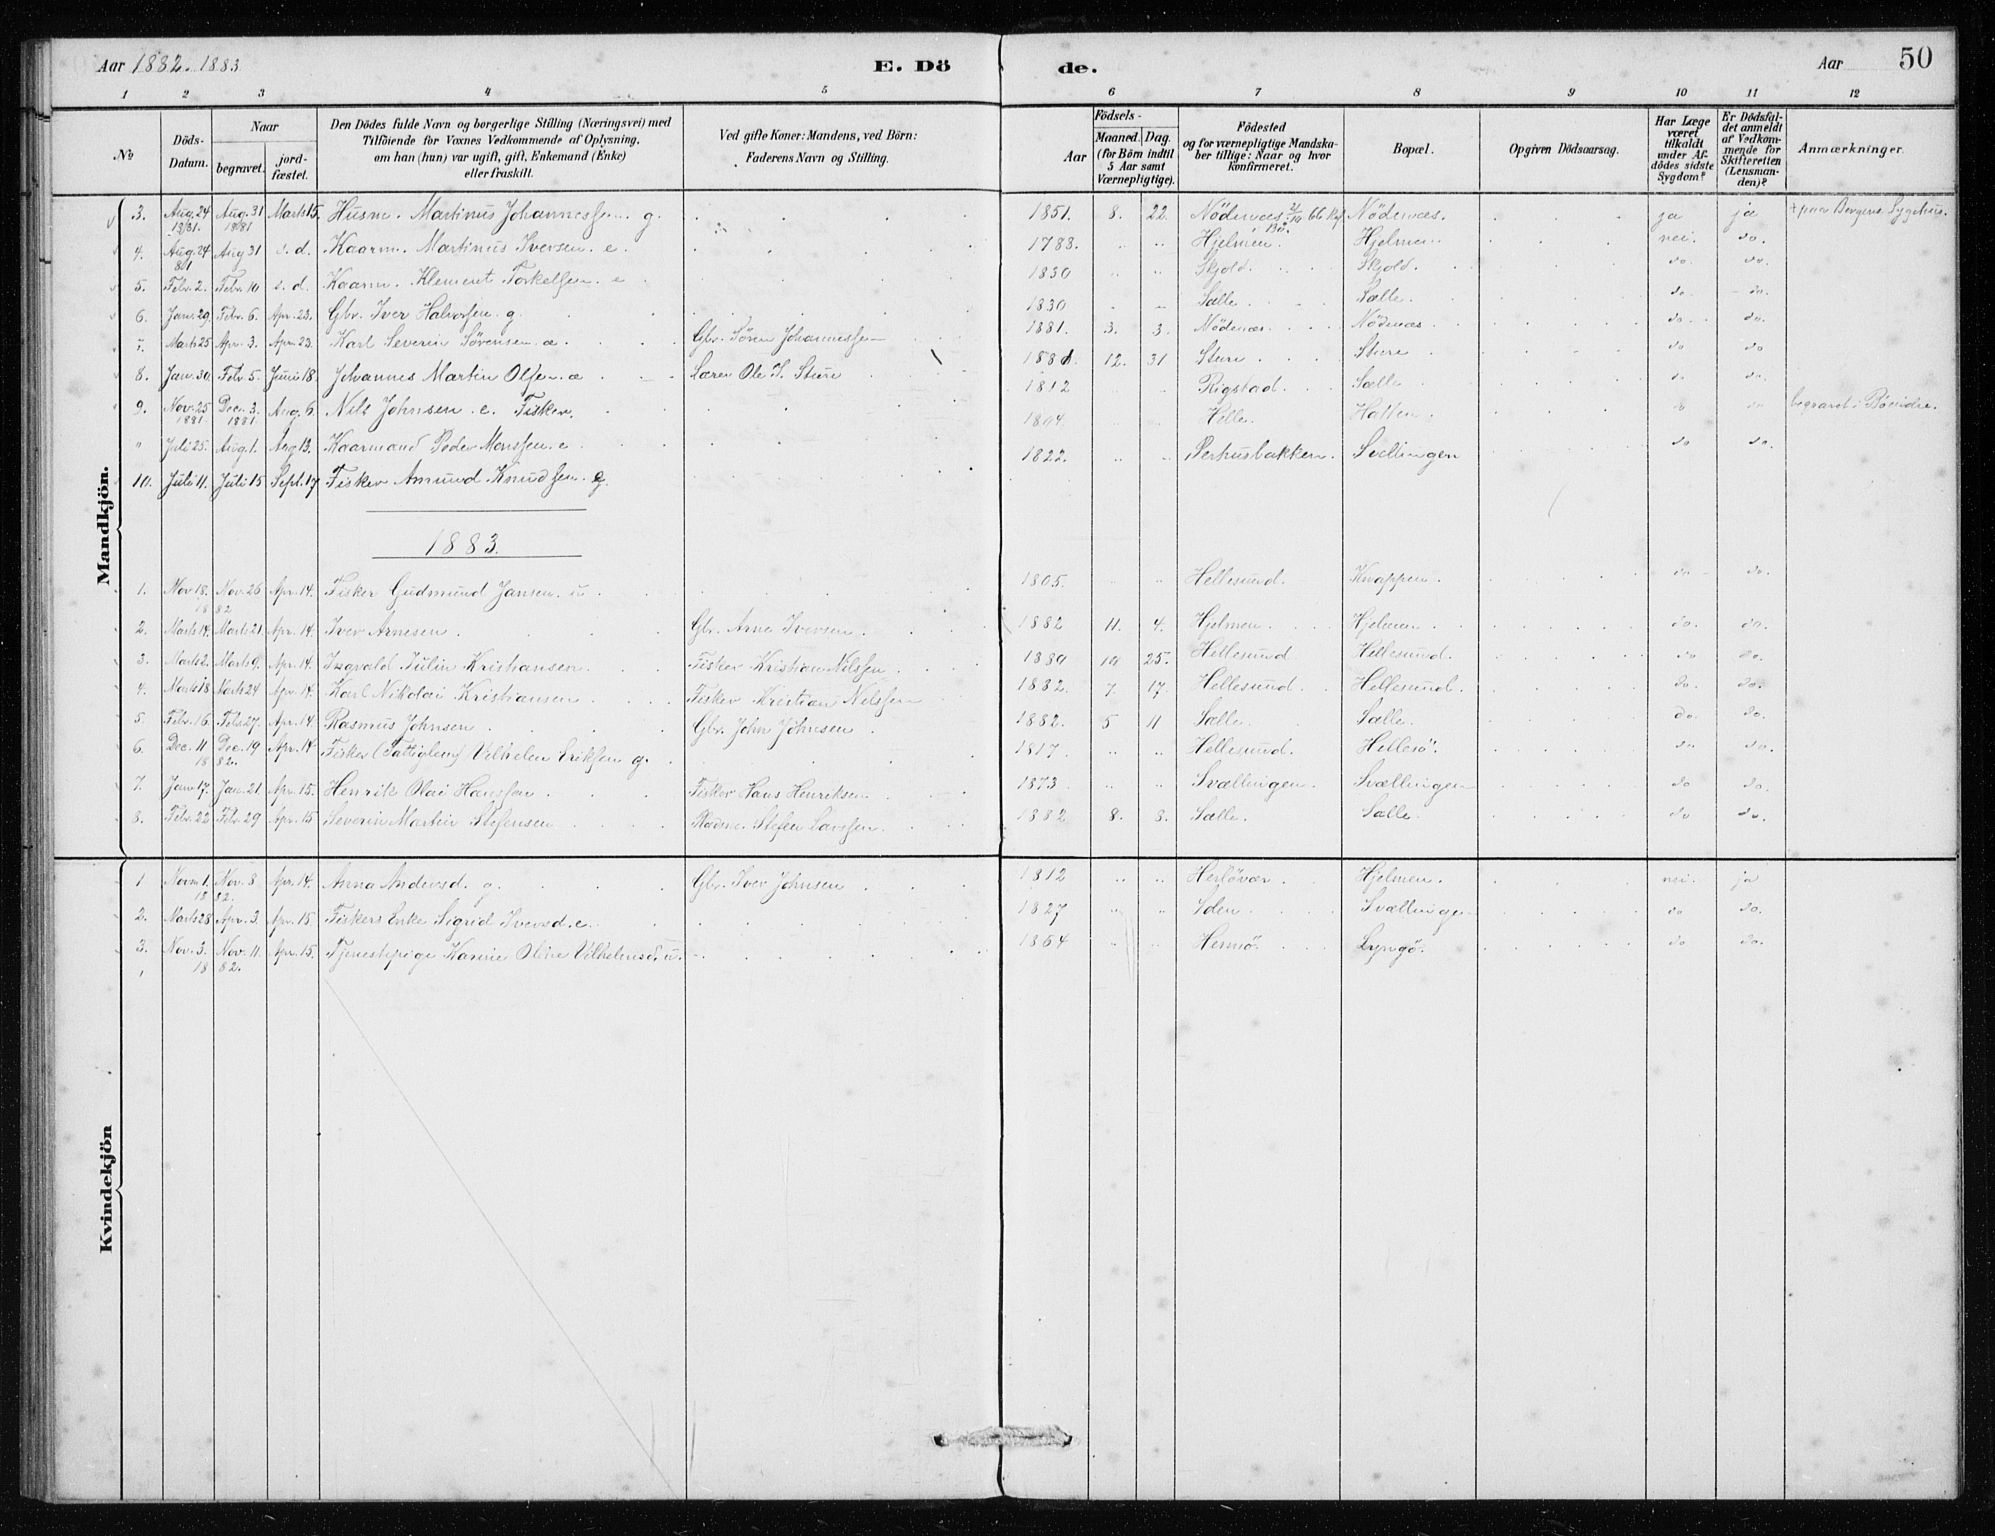 Aar 1882. 1883 E. Dö de. Aar 50
1 2 3 4 5 6 7 8 9 10 11 12
No Döds-Datum. Naar begravet. jordfæstet. Den Dödes fulde Navn og borgerlige Stilling (Næringsvei) med Tilföiende for Voxnes Vedkommende af Oplysning, om han (hun) var ugift, gift, Enkemand (Enke) eller fraskilt. Ved gifte Koner: Mandens, ved Börn: Faderens Navn og Stilling. Födsels- Aar Maaned. Dag. (for Börn indtil 5 Aar samt Værnepligtige). Födested og for værnepligtige Mandskaber tillige: Naar og hvor Konfirmeret. Bopæl. Opgiven Dödsaarsag. Har Læge været tilkaldt under Afdödes sidste Sygdom? Er Dödsfaldet anmeldt af Vedkommende for Skifteretten (Lensmanden)? Anmærkninger.
Mandkjön.
3. Aug. 24 1881. Aug. 31 1881 Marts 15. Husm. Martinus Johannessen g. 1851. 8. 22. Nödenæs 66 Nödenæs. ja ja + paa Bergens Sygehus.
4. Aug. 24 81 Aug 31 s. d. Kaarm. Martinus Iversen e. 1788. Hjelmen. Hjelmen nei. do.
5. Febr. 2. Febr. 10 s. d. Kaarm. Klement Torkelsen e. 1830 Skjold. Skjold. do. do.
6. Jan. 29. Febr. 6. Apr. 23. Gbr. Iver Halvorsen. g. 1830 Sælle. Sælle. do do.
7. Marts 25 Apr. 3. Apr. 23. Karl Severin Sörensen. Gbr. Sören Johannessen 1881. 3. 3. Nödenæs. Nödenæs do. do.
8. Jan. 30. Febr. 5. Juni 18. Johannes Martin Olsen. Lærer Ole I. Sture 1881. 12. 31 Sture Sture do do
9. Nov. 25 1881. Dec. 3. 1881. Aug. 6. Nils Johnsen. e. Fisker. 1812 Rigstad. Sælle do. do.
" Juli 25. Aug. 1. Aug 13. Kaarmand Peder Monssen. e 1804 Helle. Hatten. begravet i
10. Juli 11. Juli 15 Sept. 17 Fisker Amund Knudsen. g. 1822. Perhusbakken. Svellingen do do.
1883.
1. Nov. 18. Nov. 26 1882 Apr. 14. Fisker Gudmund Jansen. u. 1805. Hellesund. Knappen. do do.
2. Marts 14. Marts 21. Apr. 14. Iver Arnesen. Gbr. Arne Iversen. 1882 11. 4. Hjelmen. Hjelmen do. do.
3. Marts 2. Marts 9. Apr. 14. Ingvald Julin Kristiansen. Fisker Kristian Nilssen 1880 10 25. Hellesund Hellesund. do do.
4. Marts 18 Marts 24 Apr. 14. Karl Nikolai Kristiansen Fisker Kristian Nilssen 1882. 7. 17. Hellesund. Hellesund. do. do.
5. Febr. 16. Febr. 27. Apr. 14 Rasmus Johnsen Gbr. John Johnsen 1882. 5 11 Sælle. Sælle. do. do.
6. Dec. 11 Dec. 19 1882. Apr. 14 Fisker (Fattiglem) Vilhelm Eriksen g. 1817. Hellesund. Hellesö. do do.
7. Jan. 17. Jan. 21 Apr. 15. Henrik Olai Hanssen Fisker Hans Henriksen 1873 Svællingen. Svællingen do do.
8. Febr. 22 Febr. 29 Apr. 15 Severin Martin Stefensen Stefen Larssen. 1882 8. 8. Sælle. Sælle do do.
Kvindekjön
1 Novm 1. Nov. 8 1882. Apr. 14. Anna Andersd. g. Gbr. Iver Johnsen 1812 Herlövær. Hjelmen. nei. ja
2. Marts 28 Apr. 3. Apr. 15. Fiskers Enke Sigrid Iversd. e. 1827 Uden. Svællingen do do.
3. Nov. 3. Nov. 11. 1882. Apr. 15. Tjenestepige Karine Oline Vilhelmsd. u. 1864 Hernö. Lyngö. do do.